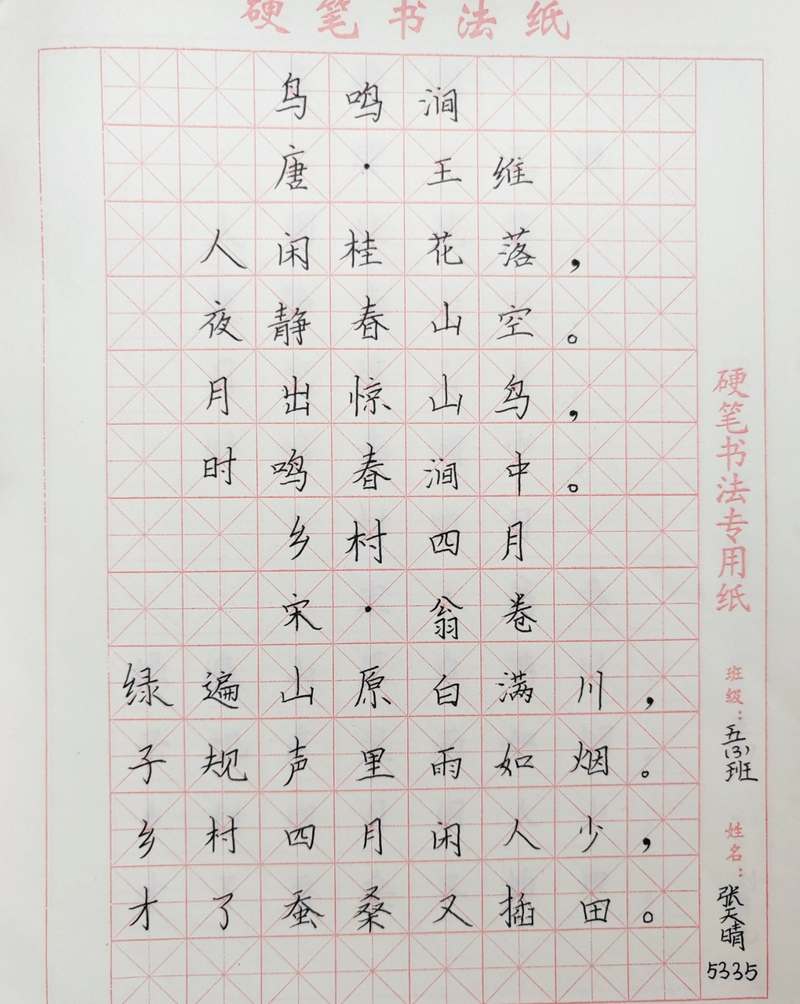 硬笔书法纸
鸟鸣涧
唐·王维
人闲桂花落，
夜静春山空。
月出惊山鸟，
时鸣春涧中。
乡村四月
宋·翁卷
绿遍山原白满川，
子规声里雨如烟。
乡村四月闲人少，
才了蚕桑又插田。
硬笔书法专用纸
班级：五(3)班
姓名：张天晴
5335